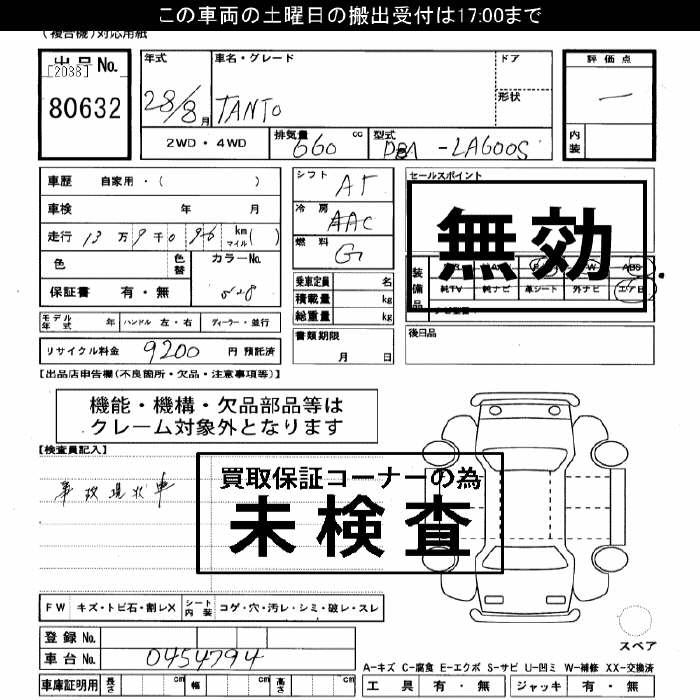 この車両の土曜日の搬出受付は17:00まで
(複合機)対応用紙
出品No. [2038] 80632
年式 28/8月
車名・グレード TANTO
ドア
形状
評価点 ー
内装
2WD・4WD
排気量 660 cc
型式 DBA -LA600S
車歴 自家用・( )
車検 年 月
走行 13万9千096 km マイル( )
色 色替 カラーNo. 528
保証書 有・無
モデル年式 年 ハンドル 左・右 ディーラー・並行
リサイクル料金 9200 円 預託済
シフト AT
冷房 AAC
燃料 G
乗車定員 名
積載量 kg
総重量 kg
書類期限 月 日
セールスポイント
無効
装備品
ABS
純TV 純ナビ 革シート 外ナビ エアB
後日品
[出品店申告欄(不良箇所・欠品・注意事項等)]
機能・機構・欠品部品等は
クレーム対象外となります
[検査員記入]
事故現状車
買取保証コーナーの為
未検査
FW キズ・トビ石・割レX シート内装 コゲ・穴・汚レ・シミ・破レ・スレ
登録No.
車台No. 0454794
車庫証明用 長さ cm 幅 cm 高さ cm
スペア
A-キズ C-腐食 E-エクボ S-サビ U-凹ミ W-補修 XX-交換済
工具 有・無 ジャッキ 有・無